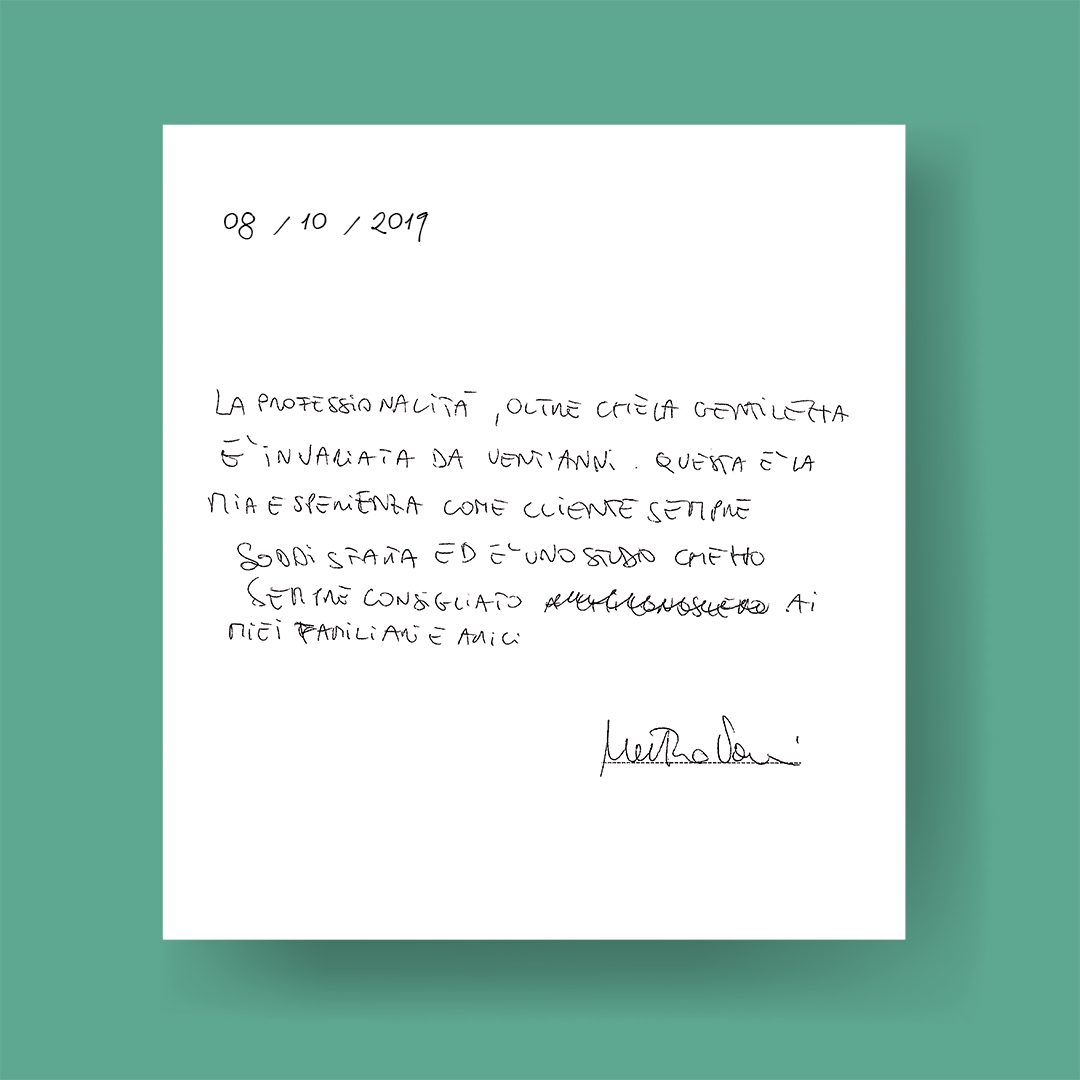 08 / 10 / 2019
LA PROFESSIONALITÀ, OLTRE CHE LA GENTILEZZA
E' INVARIATA DA VENT'ANNI. QUESTA E' LA
MIA ESPERIENZA COME CLIENTE SEMPRE
SODDISFATA ED E' UNO STUDIO CHE HO
SEMPRE CONSIGLIATO AI
MIEI FAMILIARI E AMICI